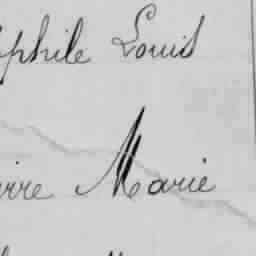 ophile Louis
ierre Marie